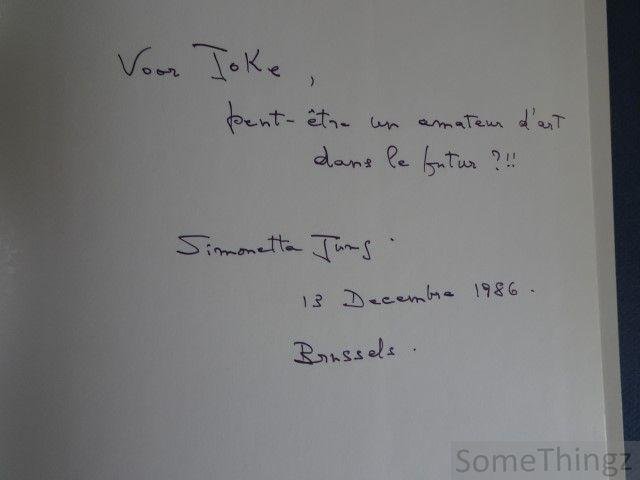 Voor Joke,
peut-être un amateur d'art
dans le futur ?!!
Simonetta Jung.
13 Decembre 1986.
Brussels.
SomeThingz